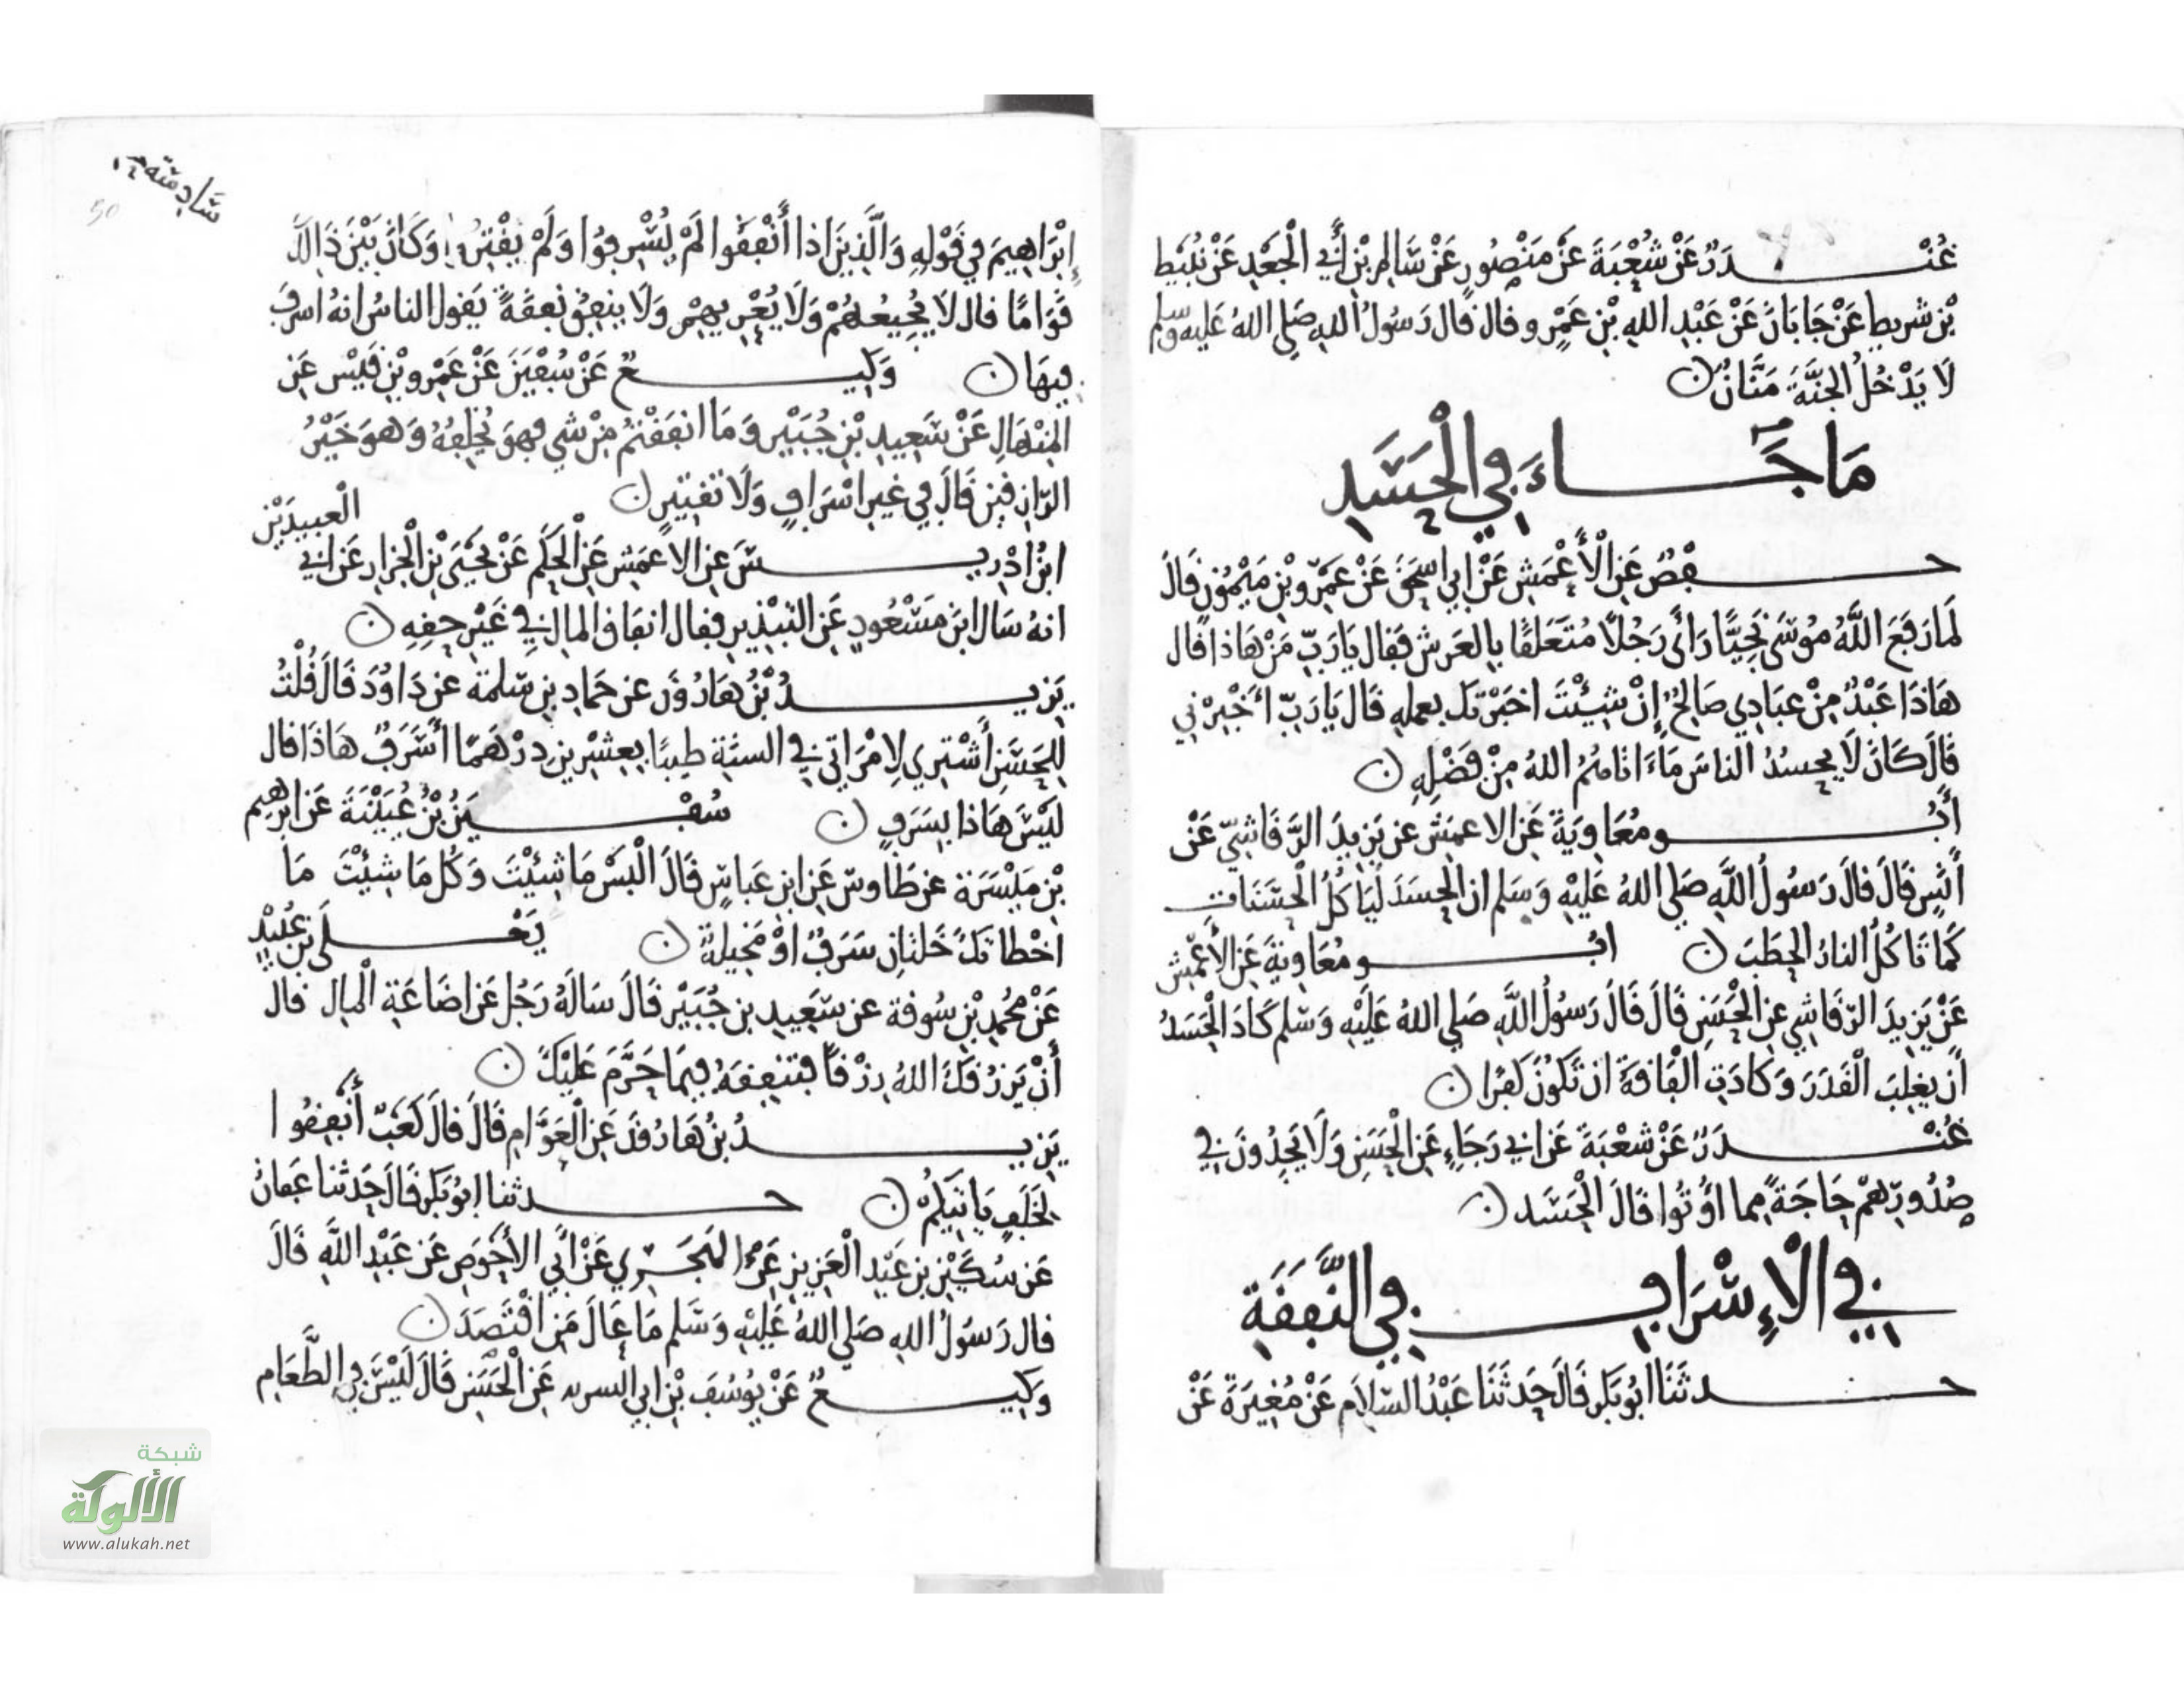 غُنْدَرٌ عَنْ شُعْبَةَ عَنْ مَنْصُورٍ عَنْ سَالِمِ بْنِ أَبِي الْجَعْدِ عَنْ نُبَيْط
بْنِ شريط عَنْ جَابَانَ عَنْ عَبْدِ اللهِ بْنِ عَمْرٍو قال قَالَ رَسُولُ اللهِ صَلى اللهُ عَليه وسلم
لَا يَدْخُلُ الجَنَّةَ مَنَّانٌ
مَا جَاءَ فِي الْحَسَدِ
حفْصٌ عَنِ الْأَعْمَشِ عَنْ ابي اسحَقَ عَنْ عَمْرِو بْنِ مَيْمُونٍ قَالَ
لَما رَفَعَ اللَّهُ مُوسَى نَجِيًّا رَأَى رَجُلًا مُتَعَلقًا بِالعَرش فَقال يَا رَبِّ مَنْ هَاذا قال
هَاذَا عَبْدٌ مِنْ عبَادِي صَالِحٌ إِنْ شِئْتَ اخبَرْتك بعمله قَالَ يَا رَبِّ أخْبِرْنِي
قَالَ كَانَ لَا يحسُدُ الناسَ مَا ءَاتَاهُمُ اللهُ مِنْ فَضْلِهِ
أَبُو مُعَاوِيَةَ عَنِ الاعمَشِ عن يَزِيدَ الرَّقَاشِيِّ عَنْ
أَنَسٍ قَالَ قَالَ رَسُولُ اللَّهِ صَلى اللهُ عَلَيْهِ وَسَلم ان الحسَدَ لَيَاكُلُ الْحَسَنَات
كَمَا تَاكُلُ النارُ الحَطَبَ ابُو مُعَاوِيَةَ عَنِ الأَعْمَش
عَنْ يَزِيدَ الرّقَاشِي عنِ الْحَسَنِ قَالَ قَالَ رَسُولُ اللَّهِ صَلى اللهُ عَلَيْهِ وَسَلم كَادَ الْحَسَدُ
أَن يغلِبَ الْقَدَرَ وَكَادَتِ الْفَاقَةُ ان تَكُونَ كفرًا
غُنْدَرٌ عَنْ شعْبَةَ عَن ابي رَجَاءٍ عَنِ الْحَسَنِ وَلَا يَجِدُونَ فِي
صُدُورِهمْ حَاجَةً مما اُوتُوا قَالَ الْحَسَد
فِي الْاِسْرَافِ فِي النَّفَقَةِ
حدثَنَا ابُو بَكر قَالَ حَدثَنَا عَبْدُ السّلاَم عَنْ مُغِيرَةَ عَنْ
إِبْرَاهِيمَ فِي قَوْلِهِ وَالَّذِينَ اذا أَنْفَقُوا لَمْ يُسْرِفُوا وَلَمْ يَقْتِرُوا وَكَانَ بَيْنَ ذَالِكَ
قَوَامًا قال لَا يُجِيعُهُمْ وَلَا يُعْرِيهِمْ وَلَا ينفِقُ نفقَةً يَقول الناسُ انهُ اسرفَ
فِيهَا وَكِيعٌ عَنْ سُفْيَنَ عَنْ عَمْرِو بْنِ قَيْسٍ عَنِ
المِنْهَالِ عَنْ سَعِيدِ بْنِ جُبَيْرٍ وَمَا انفَقْتمْ مِنْ شي فهوَ يُخْلِفُهُ وَهوَ خَيْرُ
الرّازِقين قَالَ فِي غيرِ اسْرَافٍ وَلَا تقتِيرٍ
ابْنُ ادْرِيسَ عَنِ الاعمَشِ عَنِ الْحَكَمِ عَنْ يَحْيَى بْنِ الْجَزار عَن ابي العبيدَيْنِ
انهُ سَال ابنَ مَسْعُودٍ عَنِ التبْذِير فقال انفَاق المالِ فِي غَيْرِ حقِهِ
يَزِيدُ بْنُ هَارُونَ عن حَماد بنِ سَلمة عن دَاوُدَ قَالَ قُلْتُ
لِلحَسَن أَشْتَرِي لِامْرَاتِي فِي السنَةِ طِيبًا بِعِشْرِين دِرْهَمًا أَسَرَفٌ هَاذَا قال
لَيْسَ هَاذا بسَرَفٍ سُفْيَنُ بْنُ عُيَيْنَةَ عَن ابرهيم
بْنِ مَيْسَرَة عن طَاوسٍ عَنِ ابن عَباسٍ قَالَ الْبَسْ مَا شِئْتَ وَكُل مَا شِئْتَ مَا
اخْطاتكَ خَلتَانِ سَرَفٌ اوْ مَخِيلَةٌ يَعْلَى بن عُبَيْدٍ
عَنْ مُحمدِ بْنِ سُوقة عن سَعِيدِ بن جُبَيْر قَالَ سَالَهُ رَجُل عَن اضَاعَةِ الْمال قال
أَنْ يَرْزُقَكَ اللهُ رِزْقًا فتنفِقهُ فِيمَا حَرَّمَ عَلَيْكَ
يَزِيدُ بْنُ هَارُونَ عَنِ الْعَوَّامِ قَالَ قَالَ كَعْبٌ أَنْفِقُوا
لخلَفٍ يَاتيكمْ حدثنا ابُو بَكر قَالَ حَدثَنا عَفانُ
عَن سُكَيْنِ بنِ عَبْدِ الْعَزِيزِ عَن الهَجَرِي عَنْ أَبِي الأَحْوَصِ عَن عَبْدِ اللَّهِ قَالَ
قال رَسُولُ اللهِ صَلى اللهُ عَلَيْهِ وَسَلم مَا عَالَ مَنِ اقْتَصَدَ
وَكِيعٌ عَنْ يُوسُفَ بْنِ ابي عَنِ الْحَسَنِ قَالَ لَيْسَ فِي الطَّعَامِ
50
شبكة
الألوكة
www.alukah.net